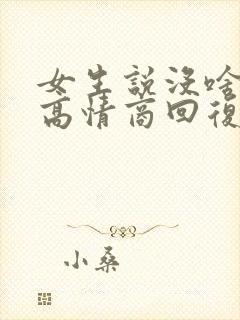 女生說沒啥
高情商回復
小桑